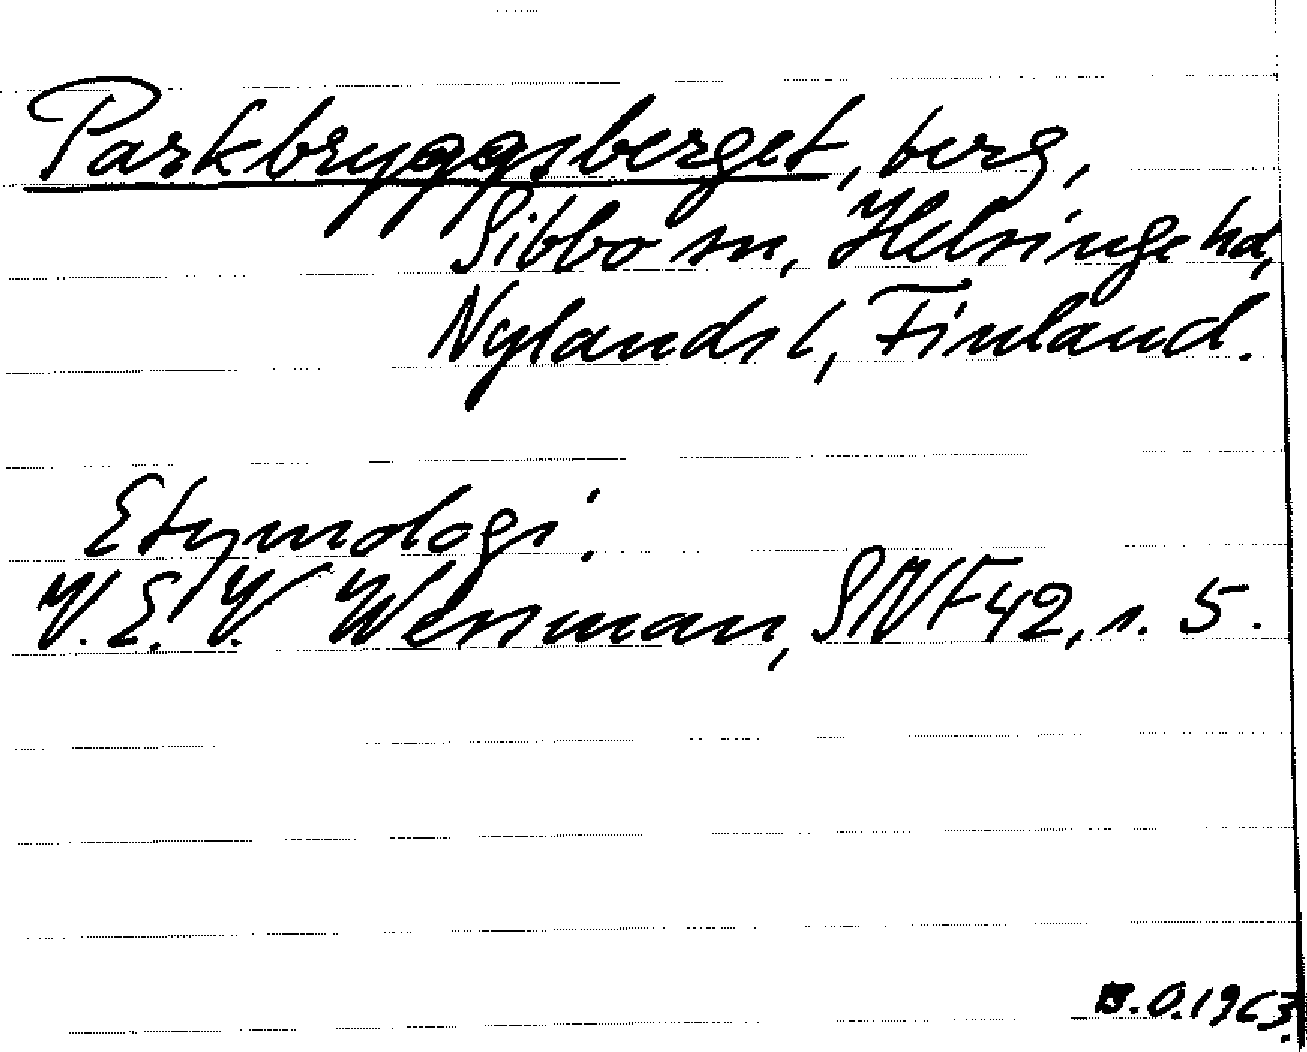 Parkbryggsberget, berg,
Sibbo sn, Helsinge hd,
Nylands l, Finland.
Etymologi.
V. E. V. Wessman, SNF 42, s. 5.
B.O.1963.